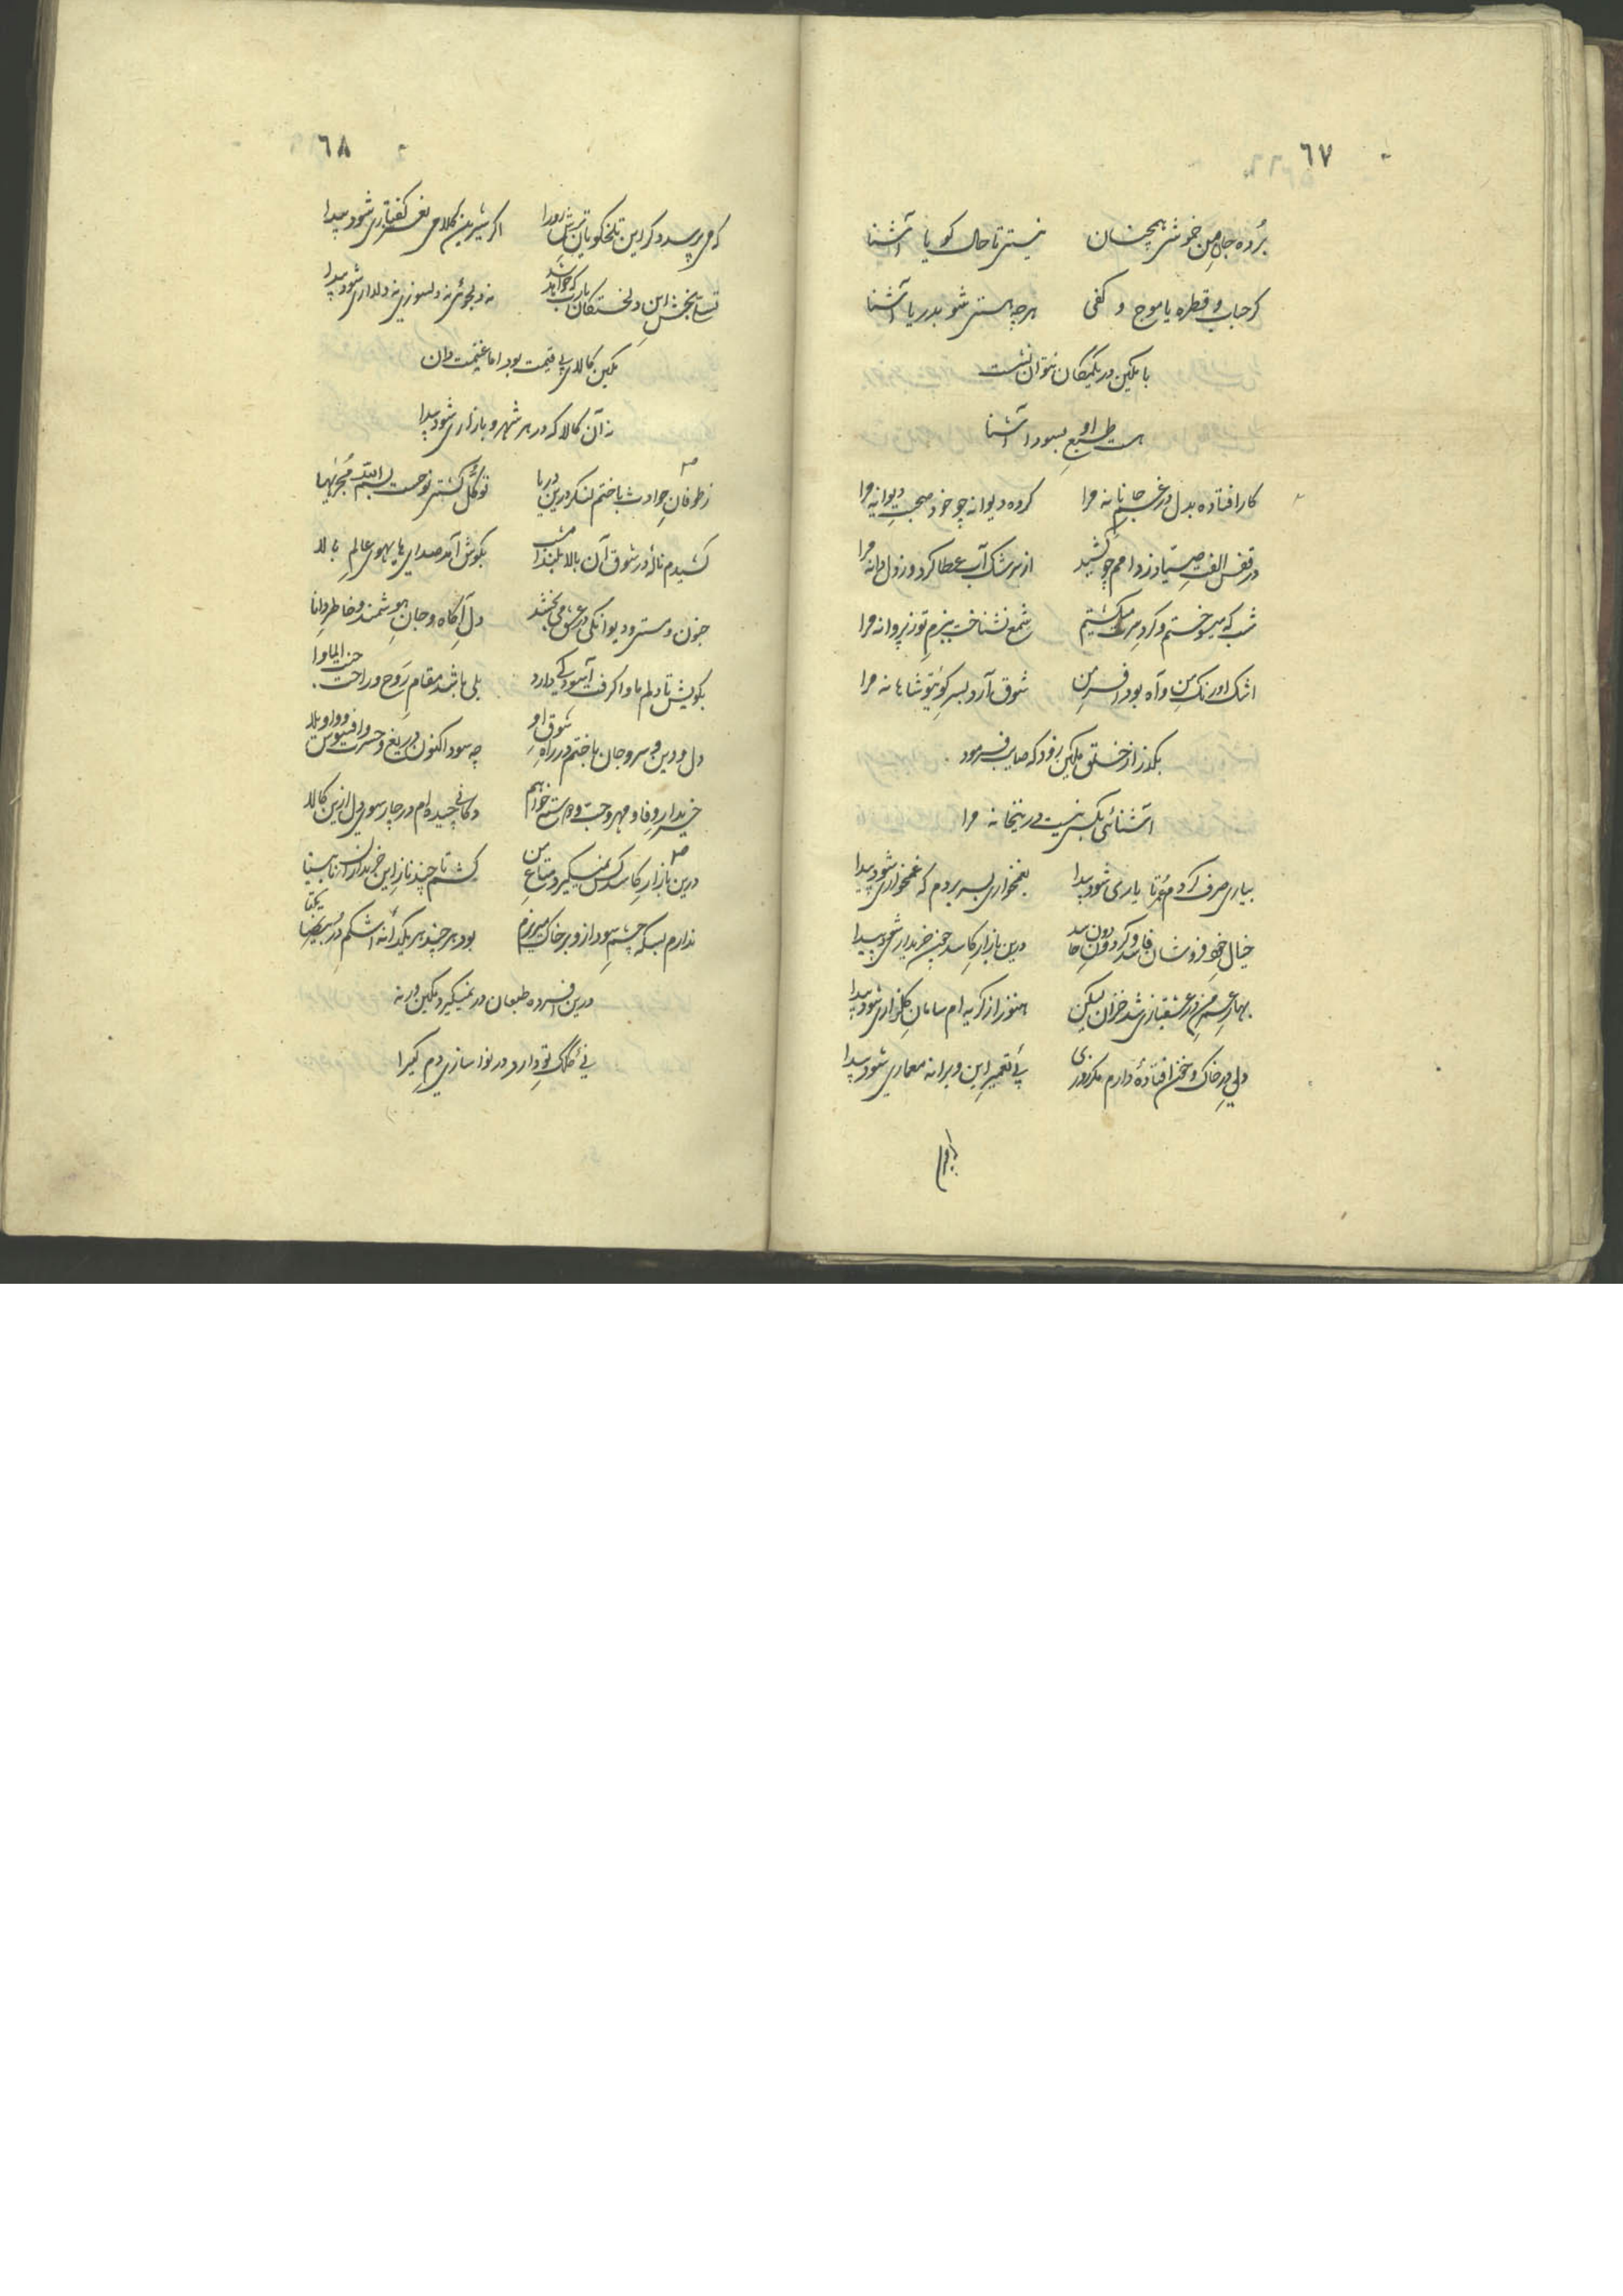 ٦٧
بُرده جاهِ من خوشی همچنان نیستی تا حال گویا آشنا
گر حباب و قطره یا موج و کفی هر چه هستی شو بدریا آشنا
با مکین در یکمکان نتوان نشست
هست طبعِ او بسودا آشنا
کار افتاده بدل در غمِ جانانه مرا کرده دیوانه چو خود صحبتِ دیوانه مرا
در قفس الفتِ صیاد ز دامم چو کشید از سرشک آب عطا کرد و ز دل دانه مرا
شب که میسوختم و گردِ سرت میگشتم شمع نشناخت ببزمِ تو ز پروانه مرا
اشک اورنگِ من و آه بود افسرِ من شوق آرد بسرِ کوی تو شاهانه مرا
بگذر از خلق مکین زود که صایب فرمود
آشنائی بکسی نیست درینخانه مرا
بیاری صرف کردم عُمر تا یاری شود پیدا بغمخواری بسر بردم که غمخواری شود پیدا
خیالِ خودفروشان فاسد و گردونِ دون حاسد درین بازارِ کاسد چون خریداری شود پیدا
بهارِ عمرِ من در عشقبازی شد خزان لیکن هنوز از گریه‌ام سامانِ گلزاری شود پیدا
دلی در خاک و خون افتادهٔ دارم مگر روزی پیِ تعمیرِ این ویرانه معماری شود پیدا
٦٨
که می‌پرسد دگر این تلخگویانِ ترش‌رو را اگر شیرین کلامی نغز گفتاری شود پیدا
تسلی‌بخشِ این دلخستگان یارب که خواهد شد نه دلجوئی نه دلسوزی نه دلداری شود پیدا
مکین کالای بی قیمت بود اما غنیمت دان
نه آن کالا که در هر شهر و بازاری شود پیدا
ز طوفانِ حوادث باختم لنگر درین دریا توکّل کشتیِ نوحست بسم الله مُجریها
کشیدم نالهٔ در شوق آن بالا بلند امشب بگوش آمد صدای هایهوی عالمِ بالا
جنون و مستی و دیوانگی در عشق می‌بخشد دلِ آگاه و جانِ هوشمند و خاطرِ دانا
بکویش تا دلم ماوا گرفت آسودگی دارد بلی باشد مقامِ رَوح و راحت جنت الماوا
دل و دین و سر و جان باختم در راهِ شوقِ او چه سود اکنون دریغ و حسرت و افسوس و واویلا
خریدارِ وفا و مهر و حبّ و دوستی خواهم دکانی چیده‌ام در چار سوی دل ازین کالا
درین بازارِ کاسد کس نمیگیرد متاعِ من کشم تا چند نازِ این خریدارانِ نابینا
ندارم بسکه چشمِ سود ازو بر خاک میریزم بود هر چند هر یکدانهٔ اشکم درِ یکتا
درین افسرده طبعان در نمیگیرد مکین ورنه
نیِ کلکِ تو دارد در نواسازی دمِ گیرا